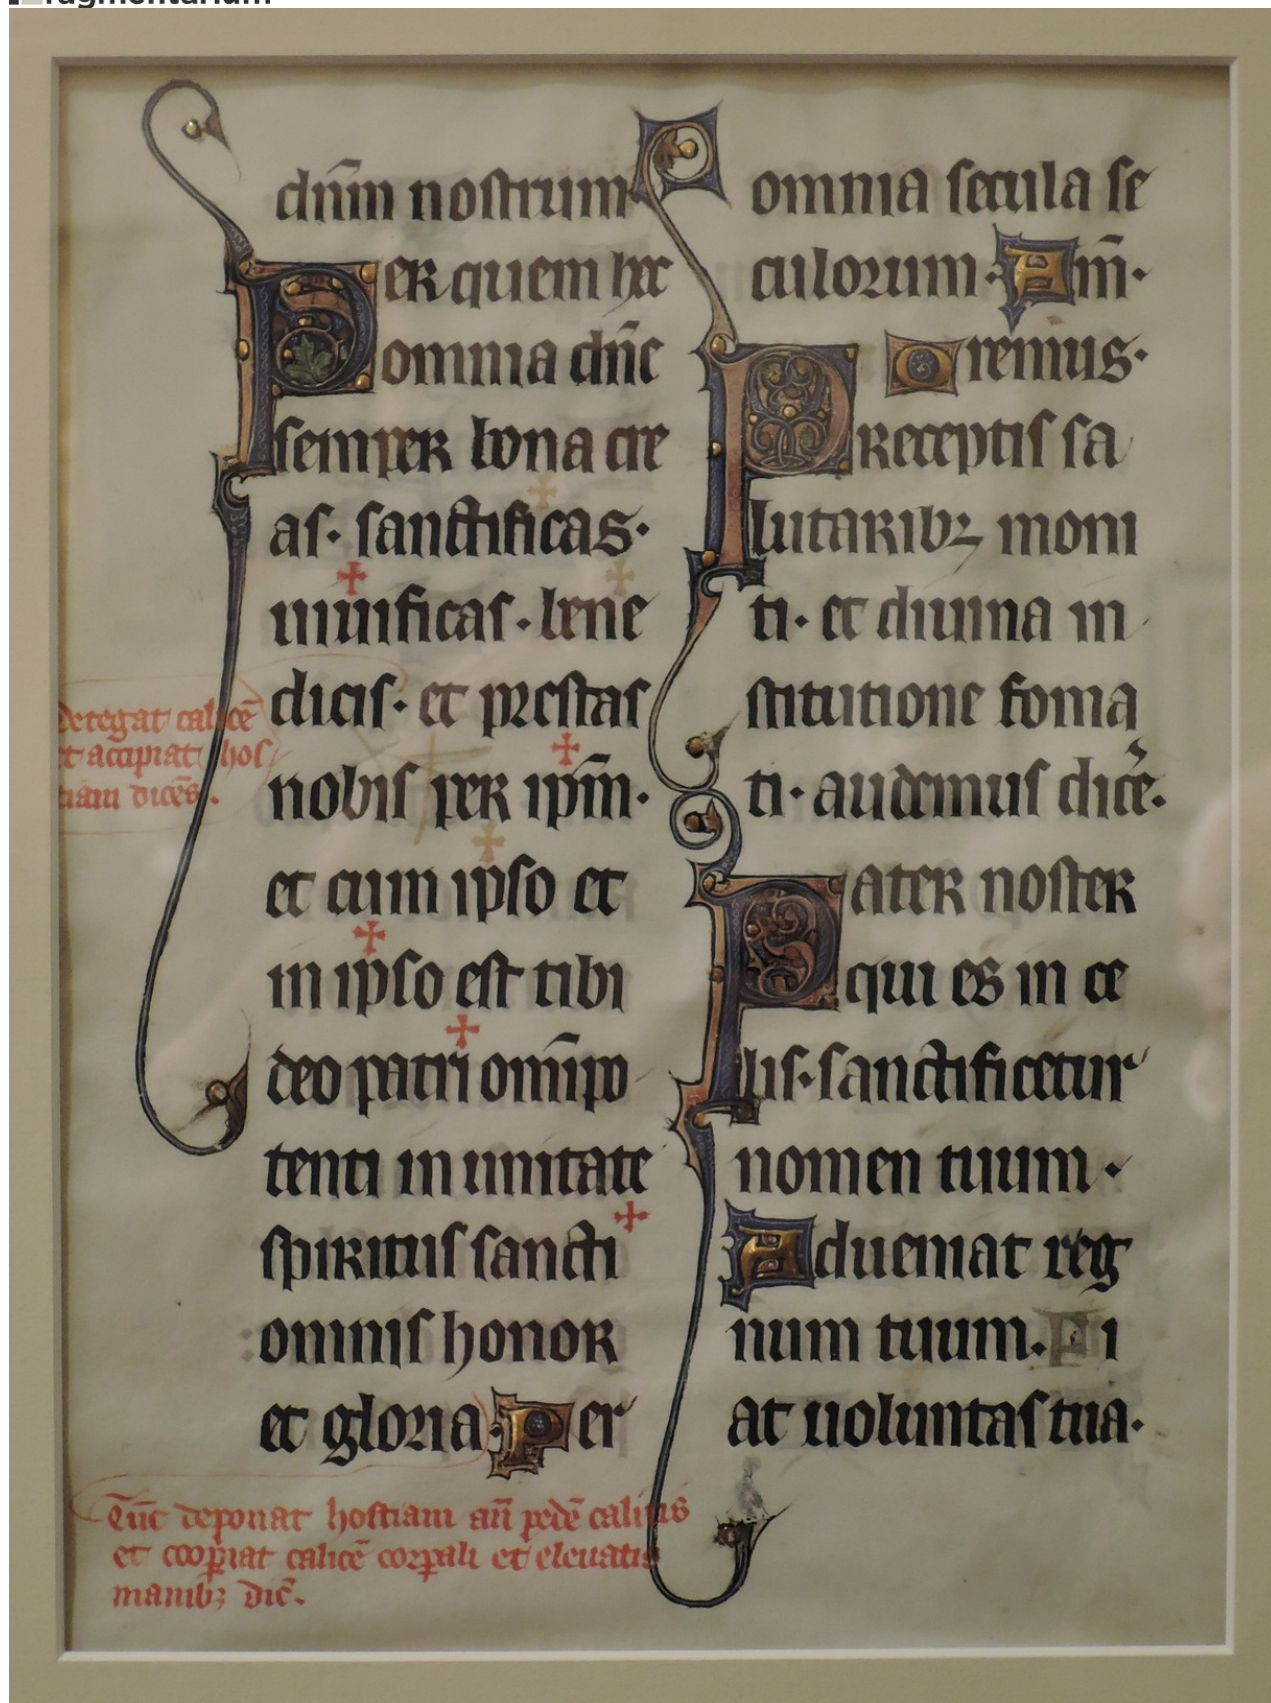 ragmentarium
dn̄m nostrum
Per quem hec
omnia dn̄e
semper bona cre
as· sanctificas·
uiuificas· bene
dicis· et prestas
nobis per ip̄m·
et cum ipso et
in ipso est tibi
deo patri om̄ipo
tenti in unitate
spiritus sancti
omnis honor
et gloria· Per
detegat calicē
et accipiat hos
tiam dicēs·
Tūc deponat hostiam an̄ pedē calicis
et coop̄iat calicē corp̄ali et eleuatis
manibꝫ dic̄·
omnia secula se
culorum· Am̄·
Oremus·
Preceptis sa
lutaribꝫ moni
ti· et diuina in
stitutione forma
ti· audemus dic̄e·
Pater noster
qui es in ce
lis· sanctificetur
nomen tuum·
Adueniat reg
num tuum· Fi
at uoluntas tua·